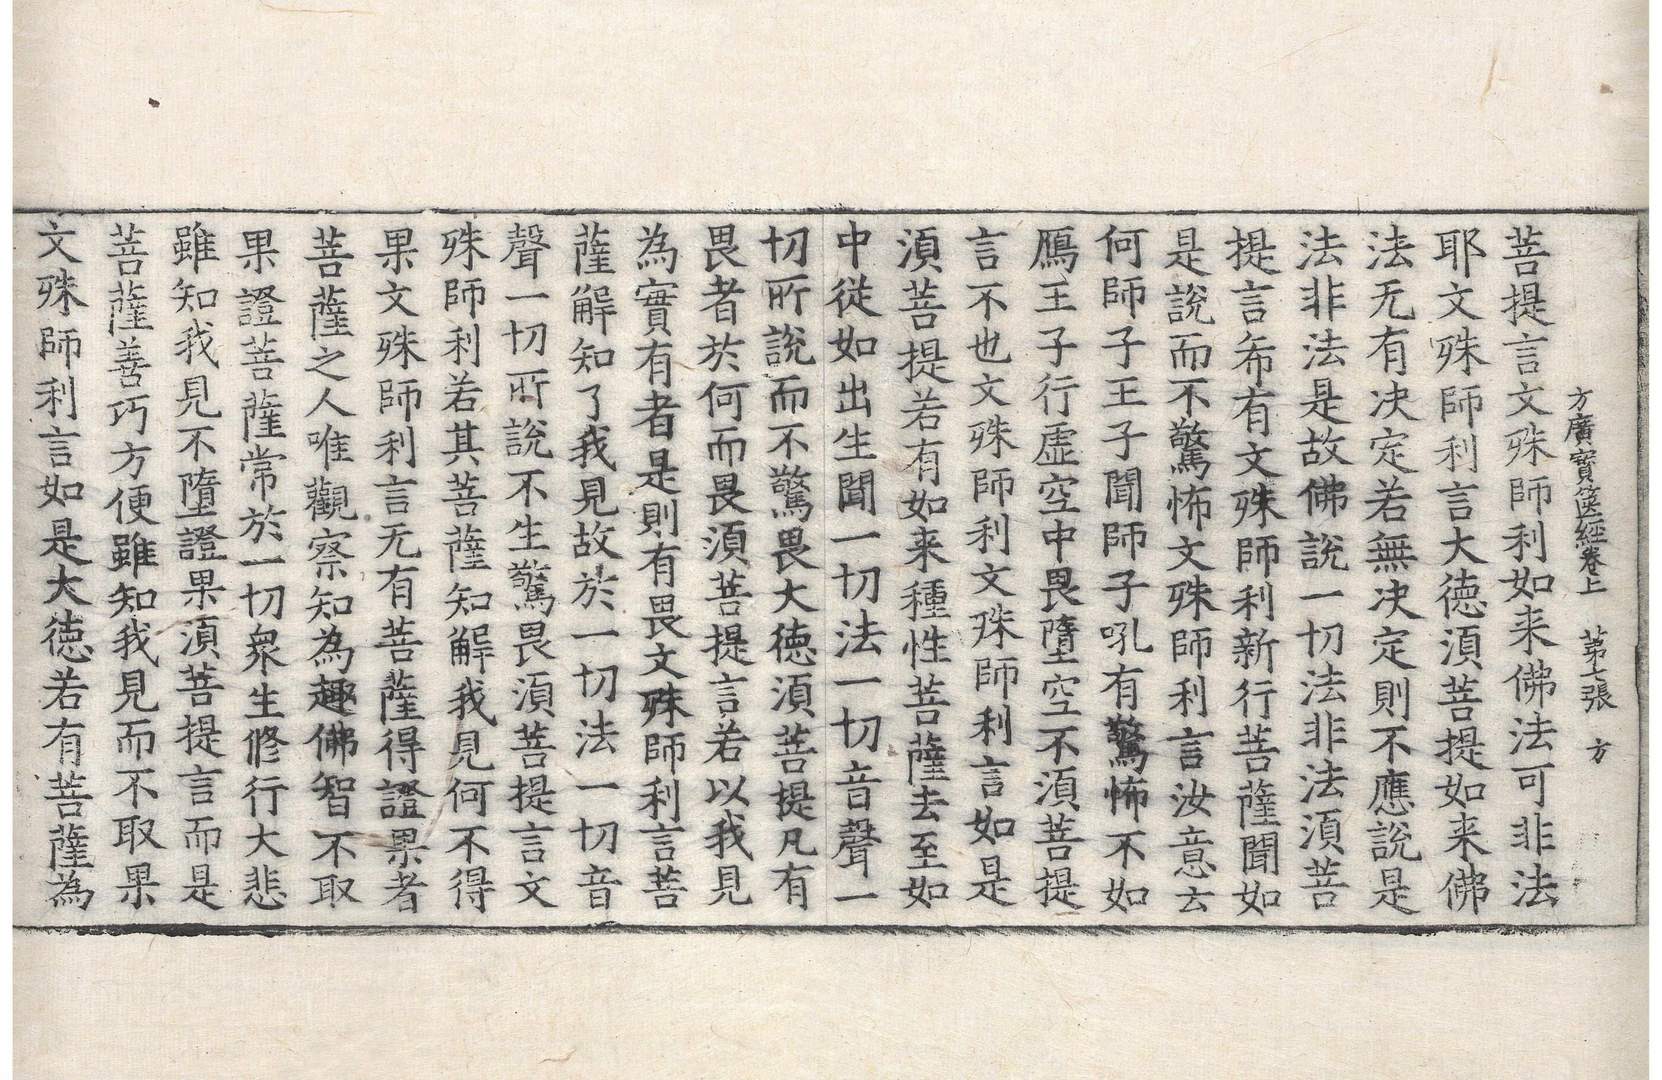 方廣寶篋經卷上 第七張 方
菩提言文殊師利如来佛法可非法
耶文殊師利言大德湏菩提如来佛
法无有决定若無决定則不應說是
法非法是故佛說一切法非法湏菩
提言希有文殊師利新行菩薩聞如
是說而不驚怖文殊師利言汝意云
何師子王子聞師子吼有驚怖不如
鴈王子行虛空中畏墮空不湏菩提
言不也文殊師利文殊師利言如是
湏菩提若有如来種性菩薩去至如
中從如出生聞一切法一切音聲一
切所說而不驚畏大德湏菩提凡有
畏者於何而畏湏菩提言若以我見
為實有者是則有畏文殊師利言菩
薩解知了我見故於一切法一切音
聲一切所說不生驚畏湏菩提言文
殊師利若其菩薩知解我見何不得
果文殊師利言无有菩薩得證果者
菩薩之人唯觀察知為趣佛智不取
果證菩薩常於一切衆生修行大悲
雖知我見不墮證果湏菩提言而是
菩薩善巧方便雖知我見而不取果
文殊師利言如是大德若有菩薩為